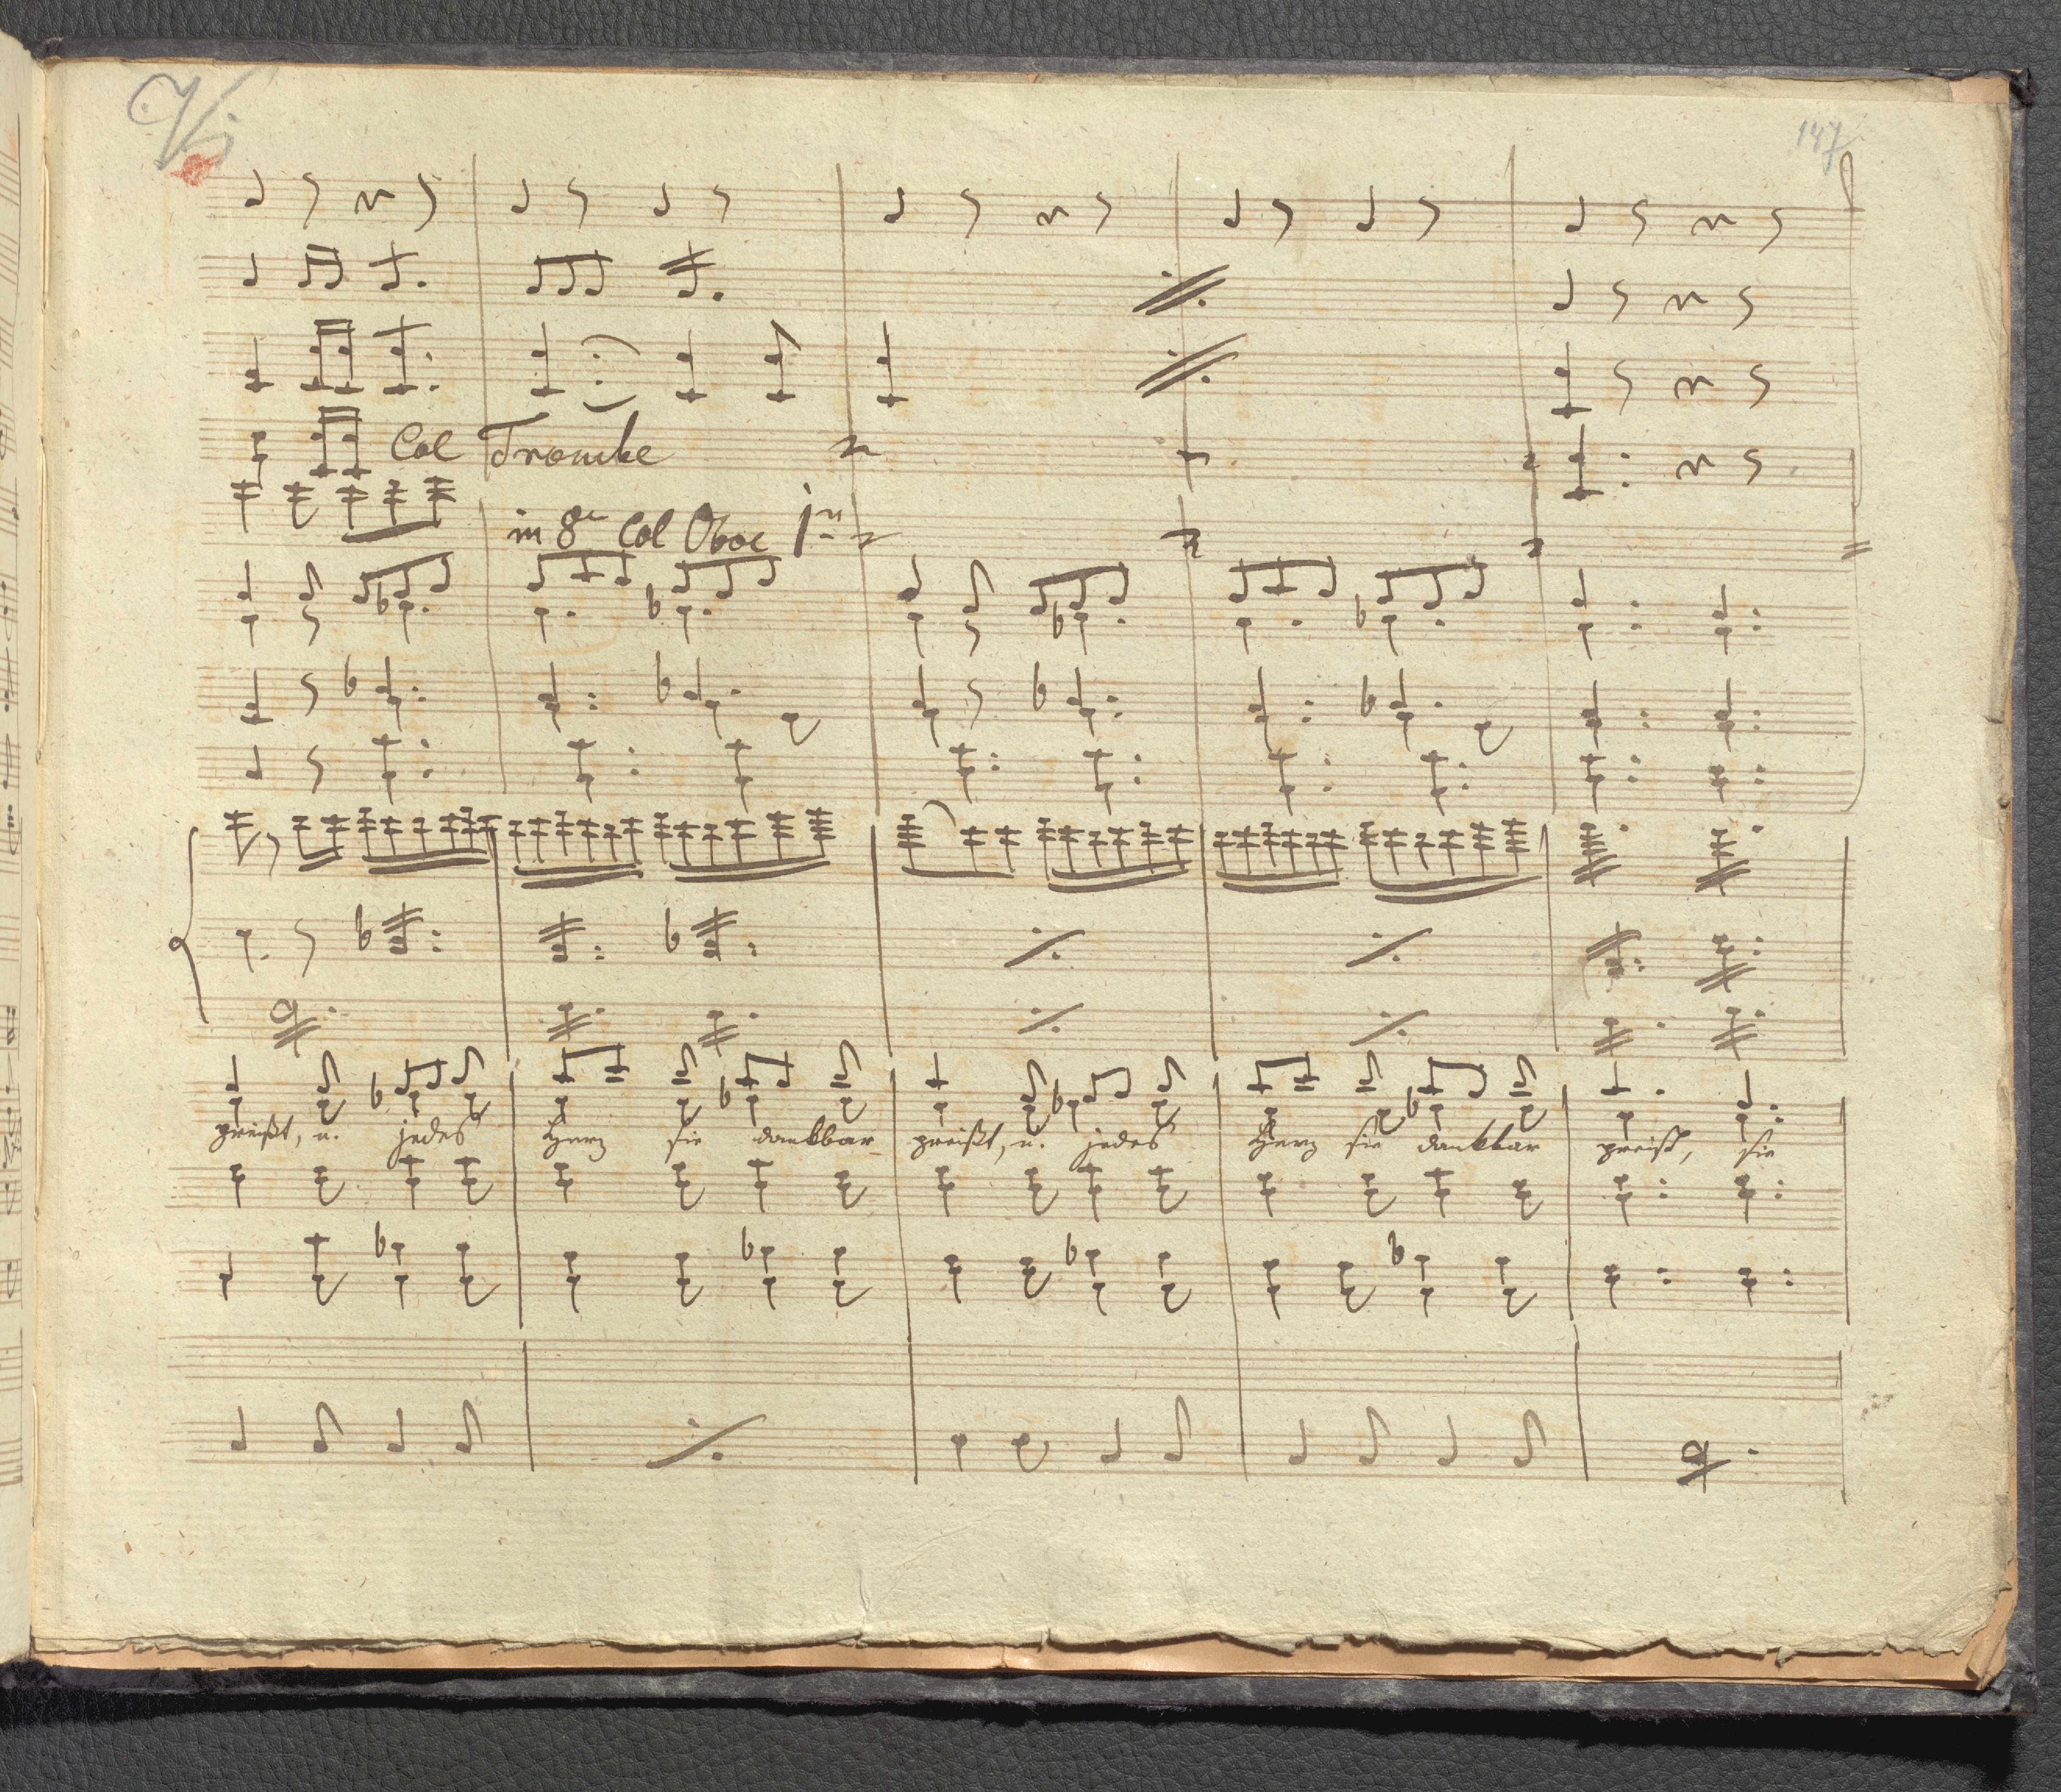 Vi
147
Col Trombe
in 8va Col Oboe 1mo
preißt, u. jedes Herz sie dankbar preißt, u. jedes Herz sie dankbar preißt, sie